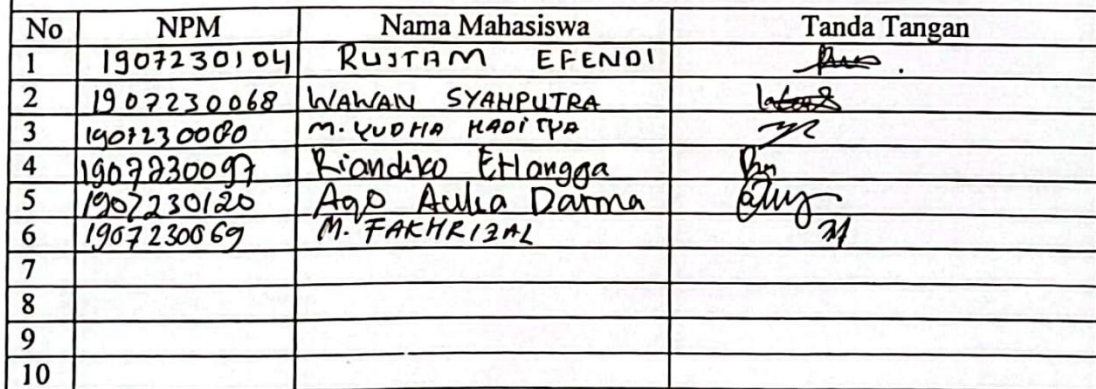 No NPM Nama Mahasiswa Tanda Tangan
1 1907230104 RUSTAM EFENDI
2 1907230068 WAWAN SYAHPUTRA
3 1907230080 M. YUDHA HADITYA
4 1907230097 Riandiko Erlangga
5 1907230120 Aqo Aulia Darma
6 1907230069 M. FAKHRIZAL
7
8
9
10